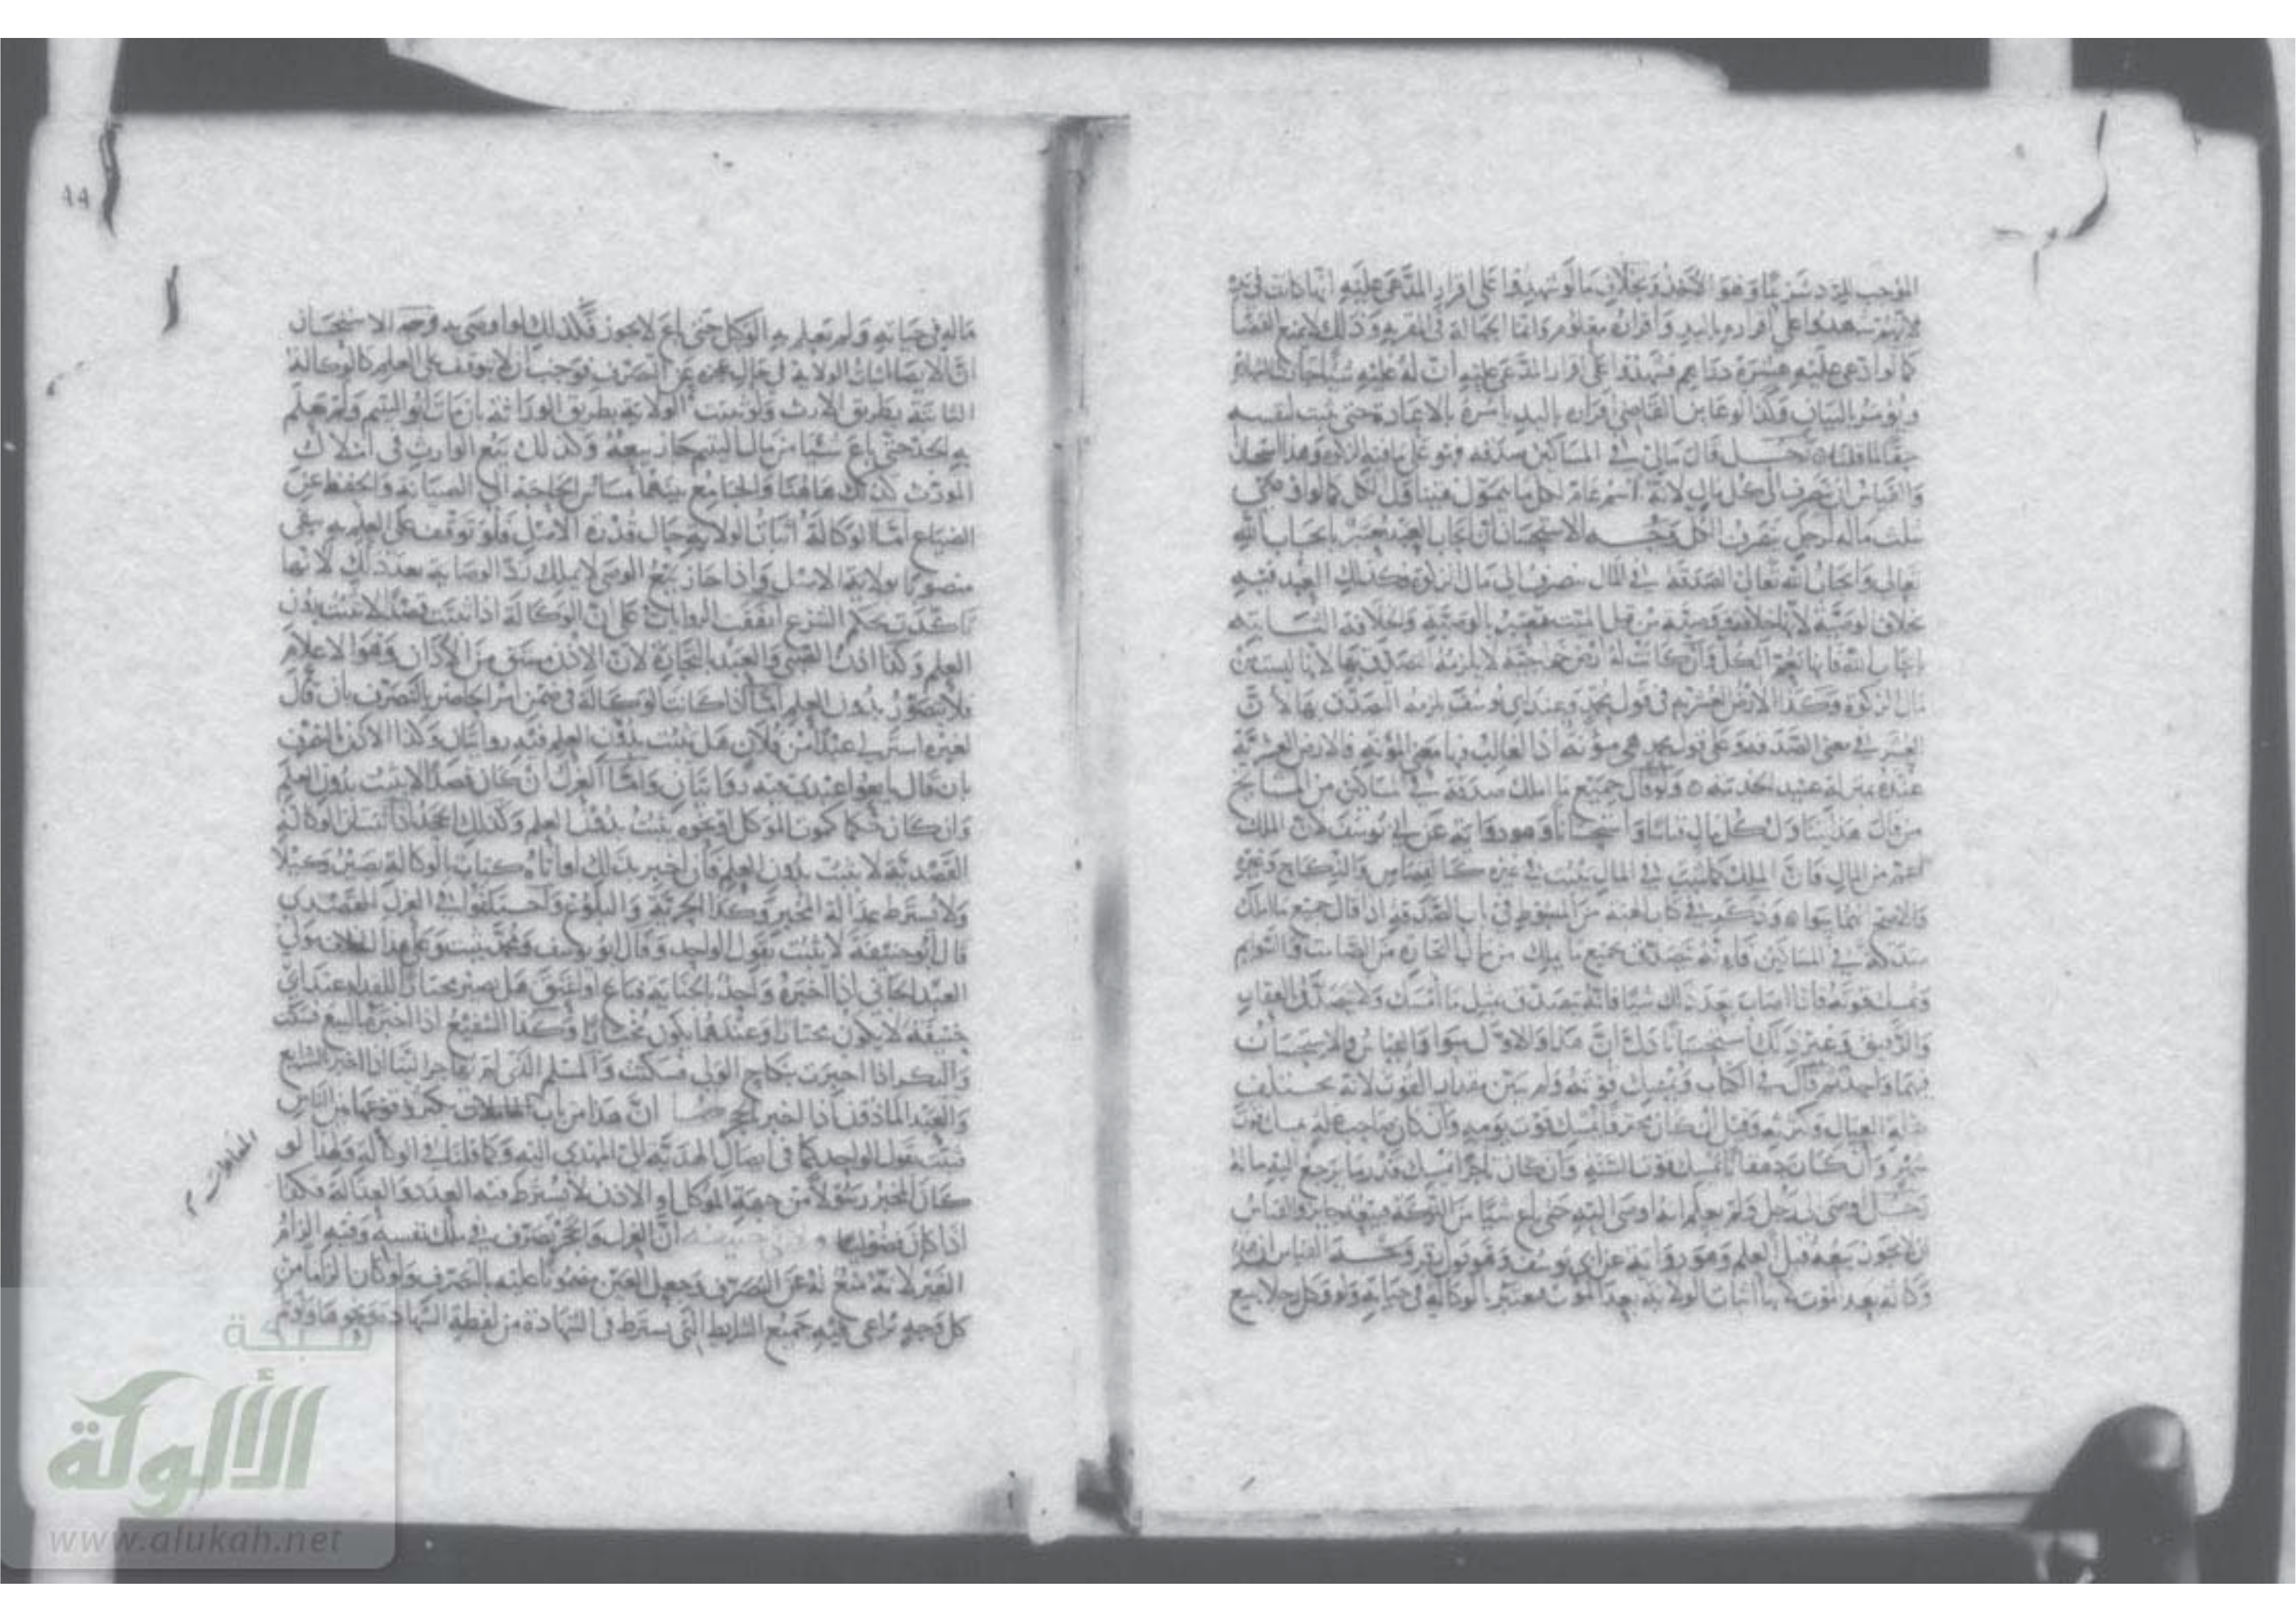 الموجب للرد شرعًا وهو الأخذ وبخلاف ما لو شهدوا على اقرار المدعى عليه انها كانت في يد
لانهم شهدوا على اقراره باليد واقراره معلوم وانما الجهالة في المقر به وذلك لا يمنع القضا
كما لو ادعى عليه عشرة دراهم فشهدوا على اقرار المدعى عليه أن له عليه شيئا جازت الشهادة
ويؤمر بالبيان وكذا لو عاين القاضي اقراره باليد يأمره بالاعادة حتى يثبت لنفسه
حقا لما قلنا رجل قال مالي في المساكين صدقة فهو على ما فيه الزكاة وهذا استحسان
والقياس أن يصرف الى كل مال لانه اسم عام لكل ما يتمول فيتناول الكل كما لو اوصى
بثلث ماله لرجل ينصرف الكل وجه الاستحسان أن ايجاب العبد يعتبر بايجاب الله
تعالى وايجاب الله تعالى الصدقة في المال ينصرف الى مال الزكوة فكذلك العبد فيه
بخلاف الوصية لانها خلافة
بايجاب الله فانها تعم الكل وان كانت له ارض خراجية لا يلزمه التصدق بها لانها ليست من
مال الزكوة وكذا الارض العشرية في قول محمد وعند ابي يوسف يلزمه التصدق بها لان
العشر في معنى الصدقة وعلى قول محمد هي مؤنة اذ الغالب فيها معنى المؤنة فالارض العشرية
عنده بمنزلة عبيد الخدمة ولو قال جميع ما املك صدقة في المساكين من المشايخ
من قال هذا يتناول كل مال قياسا واستحسانا وهو رواية عن ابي يوسف لان الملك
اعم من المال فان الملك كما يثبت في المال يثبت في غيره كالقصاص والنكاح وغيره
والاصح انهما سوا وذكر في كتاب الهبة من المبسوط في باب الصدقة اذا قال جميع ما املك
صدقة في المساكين فانه يتصدق بجميع ما يملك من مال التجارة من الصامت والسوايم
ويمسك قوته فاذا اصاب بعد ذلك شيئا فانه يتصدق بمثل ما امسك ولا يتصدق في العقار
والرقيق وغير ذلك استحسانا دل ان هذا والاول سوا والقياس والاستحسان
فيهما واحد ثم قال في الكتاب ويمسك قوته ولم يبين مقدار القوت لانه يختلف
بقلة العيال وكثرته وقيل ان كان محترفا امسك قوت يومه وان كان صاحب غلة امسك قوت
شهر وان كان دهقانا امسك قوت السنة وان كان تاجرا امسك قدر ما يرجع اليه ماله
رجل اوصى الى رجل ولم يعلم انه اوصى اليه حتى باع شيئا من التركة فبيعه جايز والقياس
ان لا يجوز بيعه قبل العلم وهو رواية عن ابي يوسف وهو قول زفر وجه القياس ان هذه
وكالة بعد الموت لانها اثبات الولاية بعد الموت فتعتبر بالوكالة في حياته ولو وكل رجلا ببيع
٩٩
ماله في حياته ولم يعلم به الوكيل حتى باع لا يجوز فكذلك اذا اوصى به وجه الاستحسان
ان الايصا اثبات الولاية في حال عجزه عن التصرف فوجب أن لا يتوقف على العلم كالوكالة
الثابتة بطريق الارث ولو ثبتت الولاية بطريق الوراثة بان مات ابو اليتيم ولم يعلم
به الجد حتى باع شيئا من مال اليتيم جاز بيعه وكذلك بيع الوارث في املاك
المورث كذلك هاهنا والجامع بينهما مساس الحاجة الى الصيانة والحفظ عن
الضياع اما الوكالة اثبات الولاية حال قدرة الاصل فلو توقف على العلم به يبقى
منصورا بولاية الاصل واذا جاز بيع الوصي لا يملك رد الوصاية بعد ذلك لانها
تأكدت بحكم الشرع اتفقت الروايات على ان الوكالة اذا ثبتت قصدا لا تثبت بدون
العلم وكذا اذن الصبي والعبد التجارة لان الاذن مشتق من الأذان وهو الاعلام
فلا يتصور بدون العلم اما اذا كانت الوكالة في ضمن امر الحاضر بالتصرف بان قال
لغيره اشتر لي عبدا من فلان هل تثبت بدون العلم فيه روايتان وكذا الاذن
بان قال بايعوا عبدي فيه روايتان واما العزل ان كان قصدا لا يثبت بدون العلم
وان كان حكما كموت الموكل ونحوه يثبت بدون العلم وكذلك العبد اذا
القصدية لا تثبت بدون العلم فان اخبر بذلك او اتاه كتاب الوكالة يصير وكيلا
ولا يشترط عدالة المخبر وكذا الحرية والبلوغ واختلفوا في العزل القصدي
قال ابو حنيفة لا يثبت بقول الواحد وقال ابو يوسف ومحمد يثبت وعلى هذا الخلاف مولى
العبد الجاني اذا اخبره واحد بالجناية فباع او اعتق هل يصير مختارا للفداء عند ابي
حنيفة لا يكون مختارا وعندهما يكون مختارا وكذا الشفيع اذا اخبر بالبيع فسكت
والبكر اذا اخبرت بنكاح الولي فسكتت والمسلم الذي لم يهاجر الينا اذا اخبر بالشرايع
والعبد المأذون اذا اخبر بالحجر لهما ان هذا من باب المعاملات يكثر وقوعها من الناس
فيثبت بقول الواحد كما في ايصال الهدية الى المهدى اليه وكما قلنا في الوكالة ولهذا لو
كان المخبر رسولا من جهة الموكل او الاذن لا يشترط فيه العدد والعدالة فكذا
اذا كان فضوليا ان العزل والحجر تصرف في ملك نفسه وفيه الزام
الغير لانه منع له عن التصرف وجعل العين مضمونا عليه بالتصرف ولو كان الزاما من
كل وجه يراعى فيه جميع الشرايط التي تشترط في الشهادة من لفظة الشهادة ونحوها ولو لم
المعاملات
شبكة
الألوكة
www.alukah.net